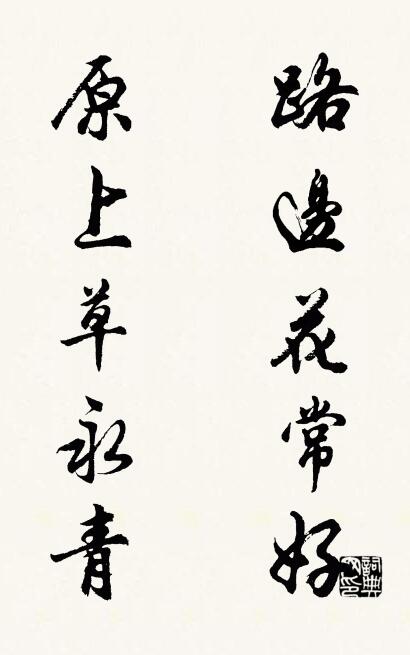 路邊花常好
原上草永青
詞典